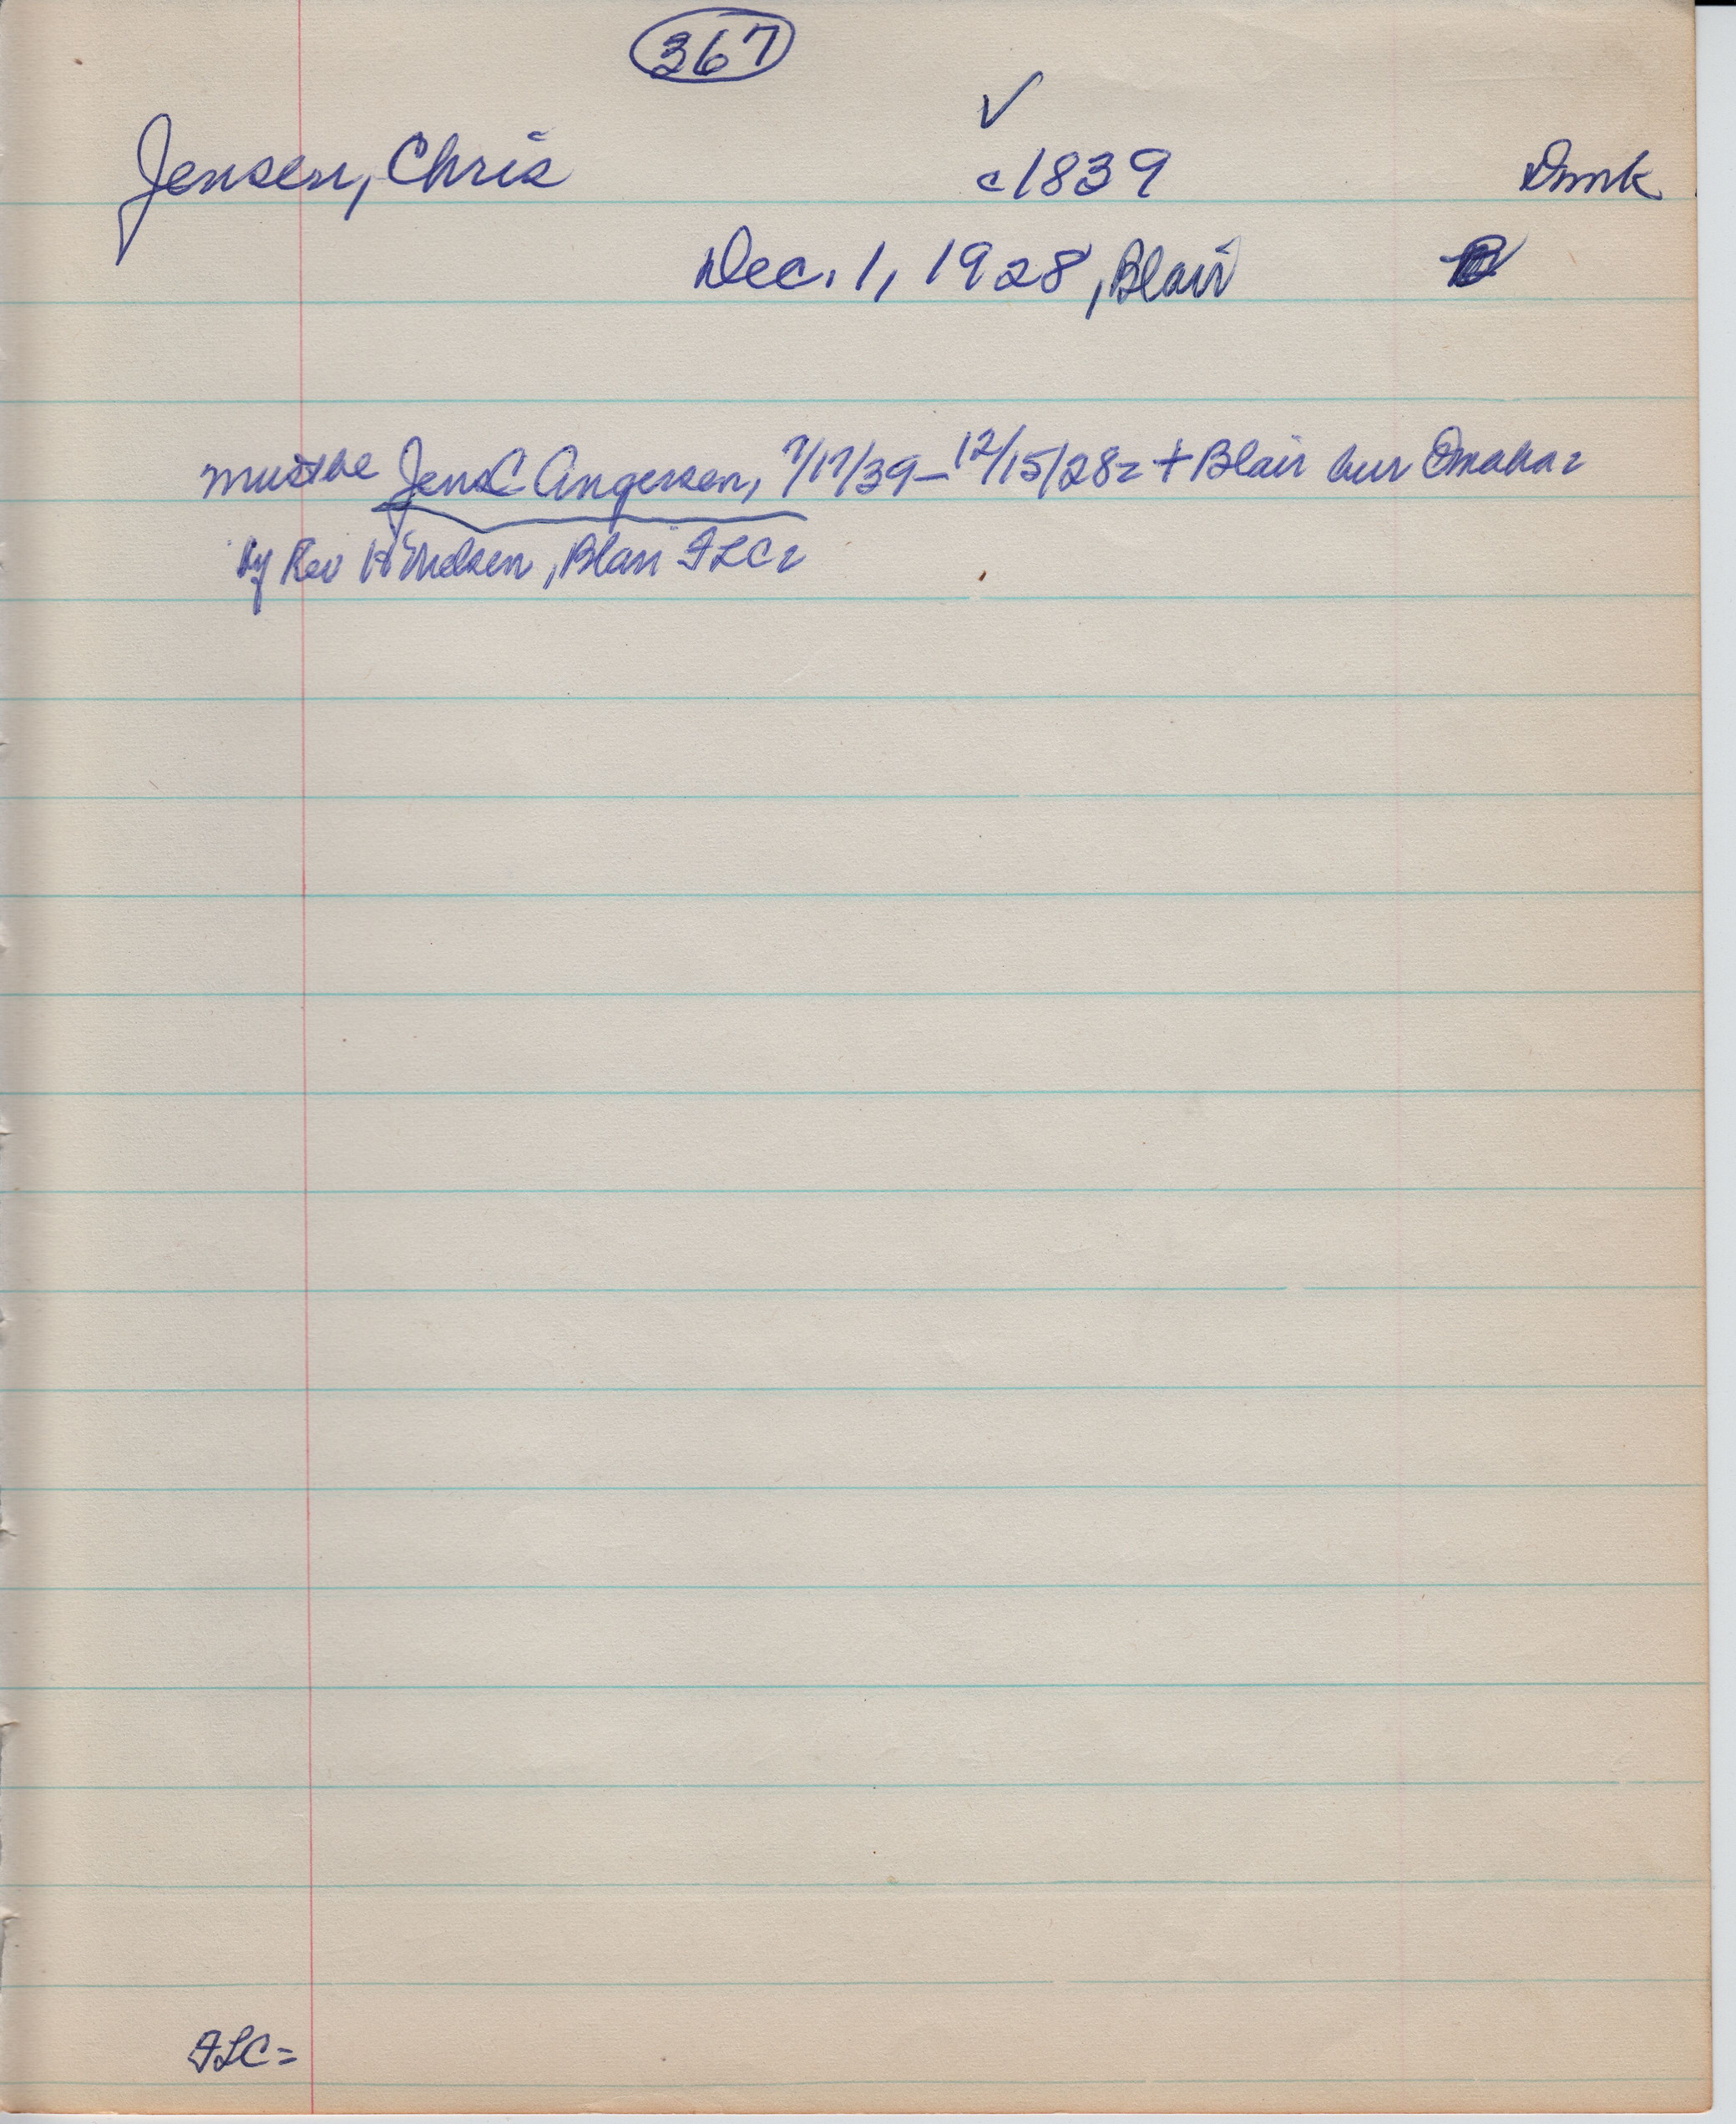 367
✓
Jensen, Chris c1839 Dmk
Dec. 1, 1928, Blair
must be Jens C Angersen, 7/17/39 – 12/15/28 = + Blair bur Omaha =
by Rev H Nielsen, Blair FLC =
FLC =